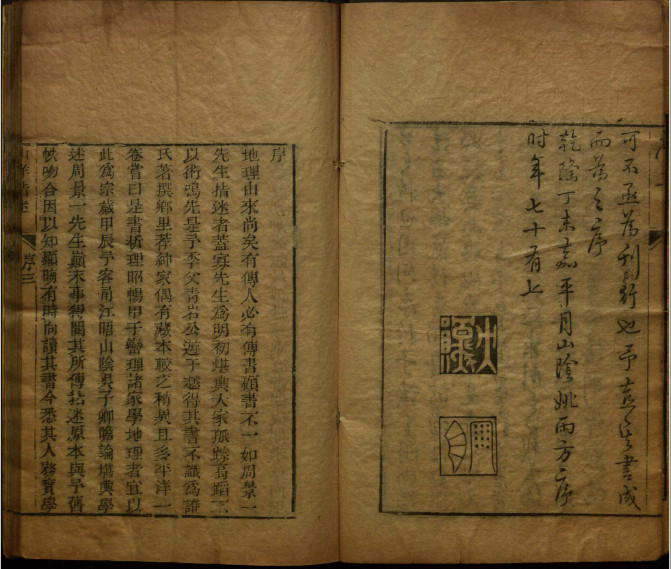 可不亟為刊行也予於是書成
而為之序
乾隆丁未嘉平月山陰姚雨方序
时年七十有七
序
地理由來尚矣有傳人必有傳書顧書不一如周景一
先生指迷者蓋寡先生為明初堪輿大家孤踪高蹈不
以術鳴先是予季父青岩公遊于越得其書不識為誰
氏著撰鄉里荐紳家偶有藏本較之稍異且多平洋一
卷嘗曰是書析理昭暢甲于巒理諸家學地理者宜以
此為宗歲甲辰予客甬江晤山陰吳子卿瞻論堪輿學
述周景一先生巔末事得閱其所傳指迷原本與予舊
帙吻合因以知顯晦有時向讀其書今悉其人務實學
山洋指迷
序三